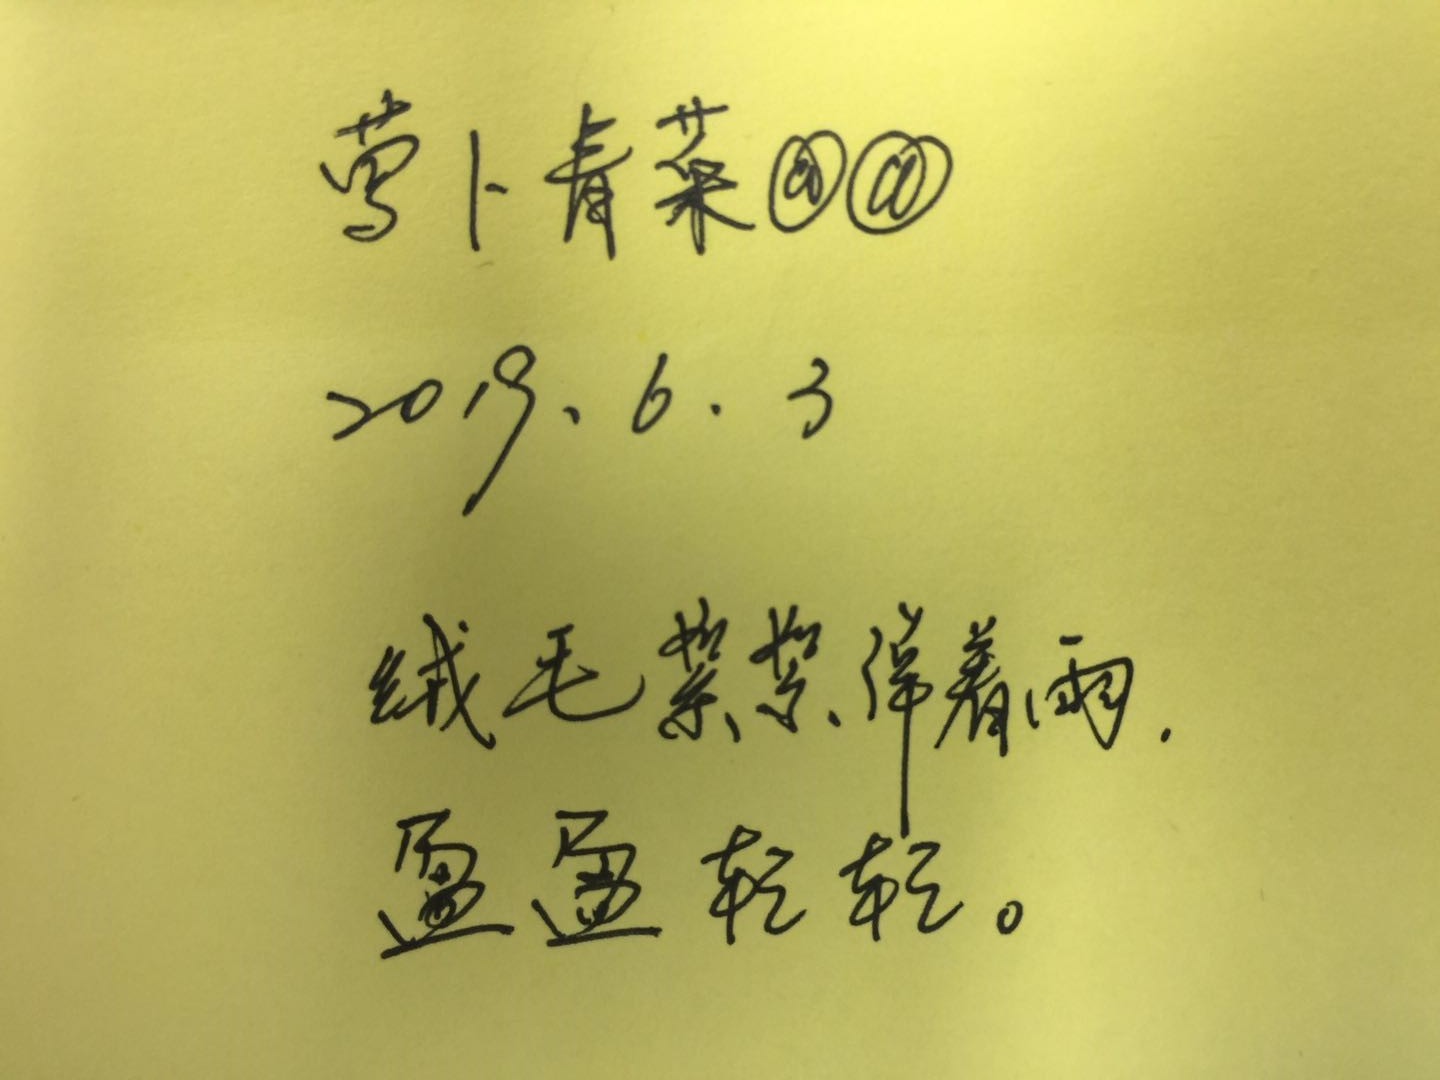 萝卜青菜@@
2019.6.3
绒毛絮絮弹着雨.
盈盈轻轻。